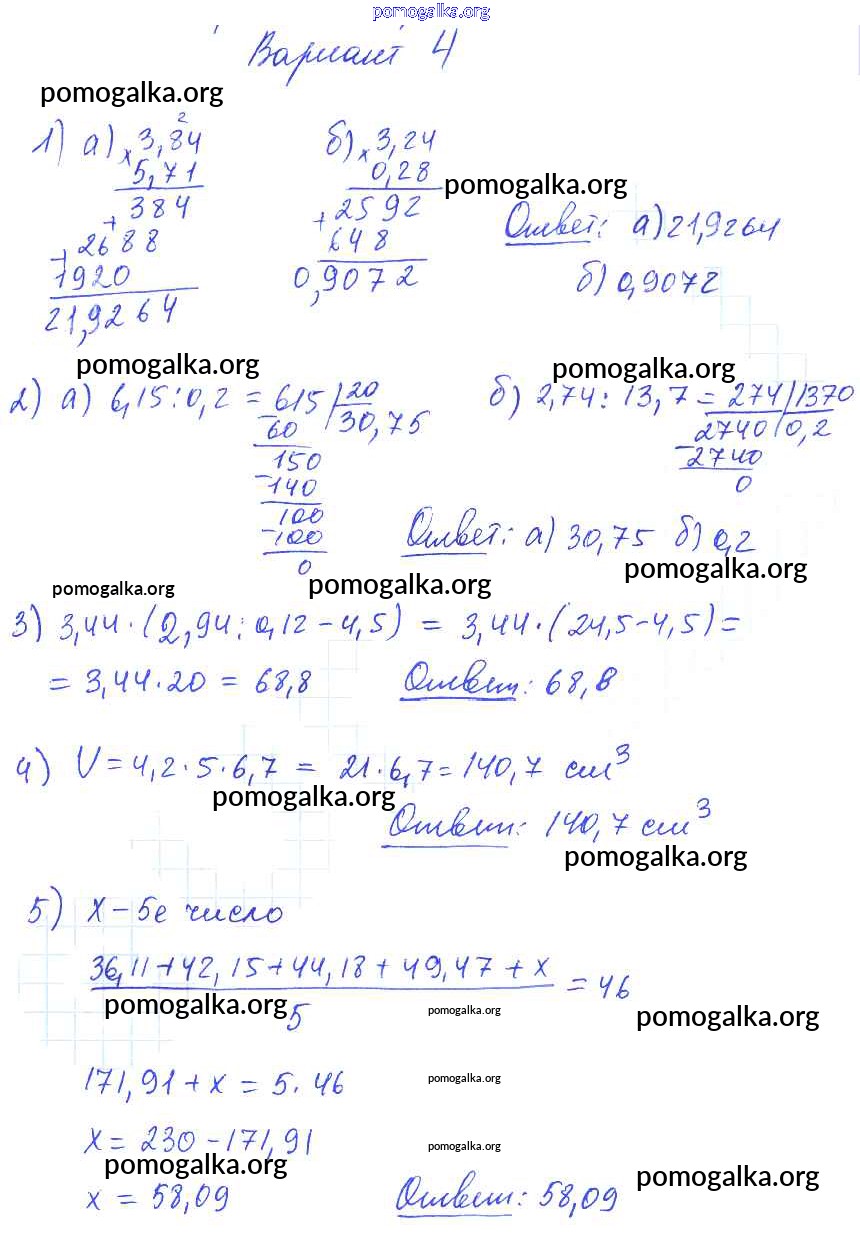 pomogalka.org
Вариант 4
pomogalka.org
1) а) × 3,84 б) × 3,24
2
5,71 0,28
pomogalka.org
+ 384 + 2592
Ответ: а) 21,9264
+ 2688 648
1920 0,9072
б) 0,9072
21,9264
pomogalka.org pomogalka.org
2) а) 6,15 : 0,2 = 615 | 20 б) 2,74 : 13,7 = 274 | 1370
60 | 30,75 2740 | 0,2
150 - 2740
- 140 0
100
- 100 Ответ: а) 30,75 б) 0,2
0
pomogalka.org
pomogalka.org pomogalka.org
3) 3,44 · (2,94 : 0,12 - 4,5) = 3,44 · (24,5 - 4,5) =
= 3,44 · 20 = 68,8 Ответ: 68,8
4) V = 4,2 · 5 · 6,7 = 21 · 6,7 = 140,7 см³
pomogalka.org
Ответ: 140,7 см³
pomogalka.org
5) x - 5е число
36,11 + 42,15 + 44,18 + 49,47 + x
= 46
5
pomogalka.org pomogalka.org pomogalka.org
171,91 + x = 5 · 46
pomogalka.org
x = 230 - 171,91
pomogalka.org
pomogalka.org pomogalka.org
x = 58,09 Ответ: 58,09